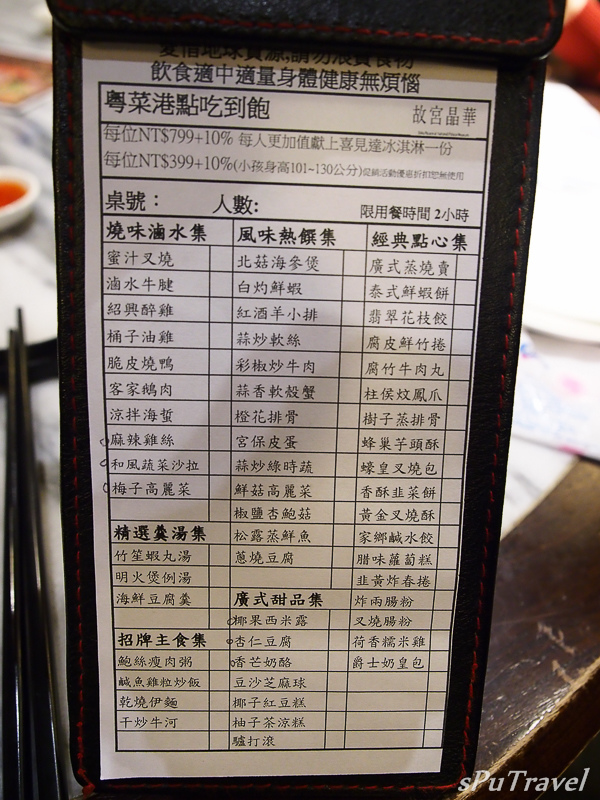 愛惜地球資源,請勿浪費食物
飲食適中適量身體健康無煩惱
粵菜港點吃到飽
故宮晶華
每位NT$799+10% 每人更加值獻上喜見達冰淇淋一份
每位NT$399+10%(小孩身高101~130公分)促銷活動優惠折扣恕無使用
桌號： 人數: 限用餐時間 2小時
燒味滷水集 風味熱饌集 經典點心集
蜜汁叉燒 北菇海參煲 廣式蒸燒賣
滷水牛腱 白灼鮮蝦 泰式鮮蝦餅
紹興醉雞 紅酒羊小排 翡翠花枝餃
桶子油雞 蒜炒軟絲 腐皮鮮竹捲
脆皮燒鴨 彩椒炒牛肉 腐竹牛肉丸
客家鵝肉 蒜香軟殼蟹 柱侯炆鳳爪
涼拌海蜇 橙花排骨 樹子蒸排骨
麻辣雞絲 宮保皮蛋 蜂巢芋頭酥
和風蔬菜沙拉 蒜炒綠時蔬 蠔皇叉燒包
梅子高麗菜 鮮菇高麗菜 香酥韭菜餅
椒鹽杏鮑菇 黃金叉燒酥
精選羹湯集 松露蒸鮮魚 家鄉鹹水餃
竹笙蝦丸湯 蔥燒豆腐 腊味蘿蔔糕
明火煲例湯 韭黃炸春捲
海鮮豆腐羹 廣式甜品集 炸兩腸粉
椰果西米露 叉燒腸粉
招牌主食集 杏仁豆腐 荷香糯米雞
鮑絲瘦肉粥 香芒奶酪 爵士奶皇包
鹹魚雞粒炒飯 豆沙芝麻球
乾燒伊麵 椰子紅豆糕
干炒牛河 柚子茶涼糕
驢打滾
sPuTravel